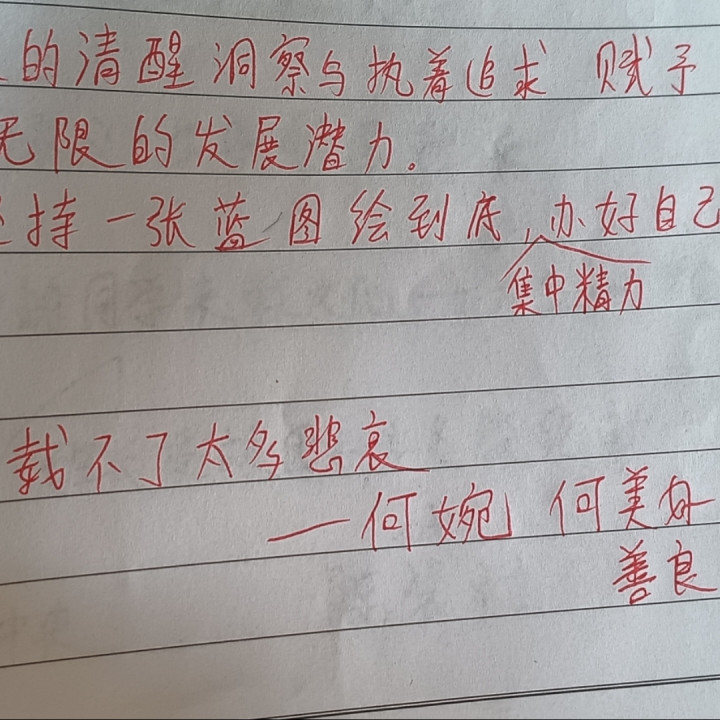 的清醒洞察与执着追求 赋予
无限的发展潜力。
持一张蓝图绘到底,办好自己
集中精力
载不了太多悲哀
—何婉 何美好
善良